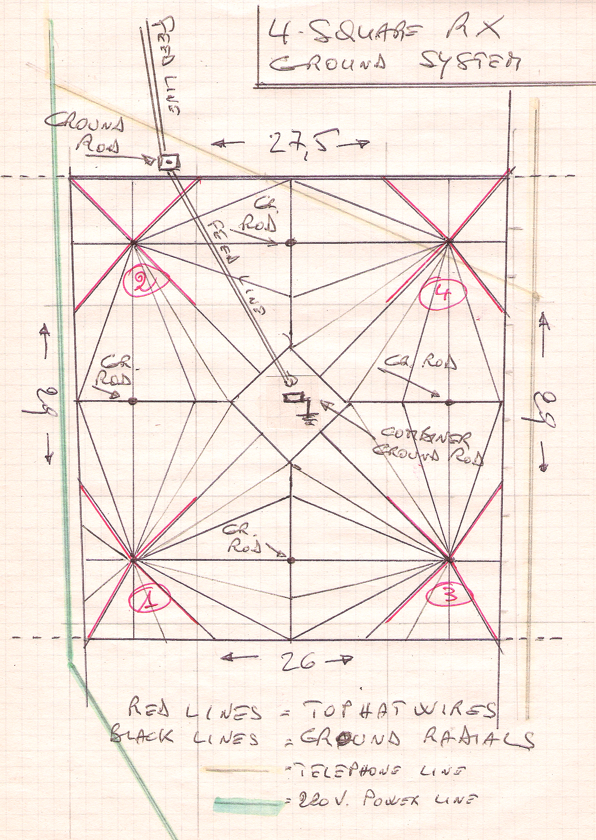 4-SQUARE RX
GROUND SYSTEM
FEED LINES
GROUND
ROD
27,5
GR.
ROD
FEED LINES
2
4
GR.
ROD
GR. ROD
29
29
COMBINER
GROUND ROD
GR.
ROD
1
3
26
RED LINES = TOPHAT WIRES
BLACK LINES = GROUND RADIALS
= TELEPHONE LINE
= 220V. POWER LINE